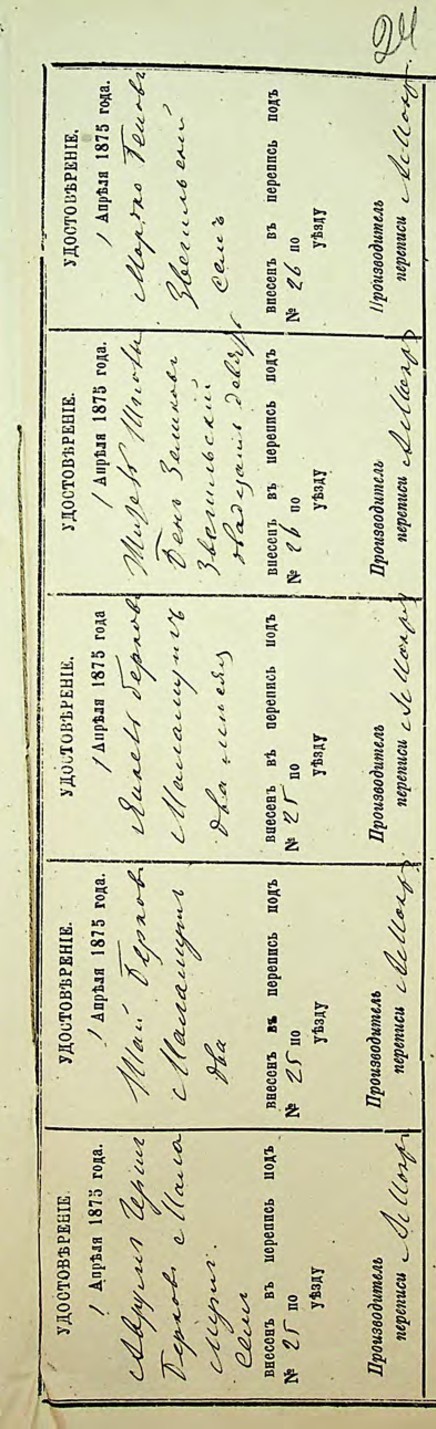 24
УДОСТОВѢРЕНІЕ.
1 Апрѣля 1875 года.
Аврумъ Герш
Берковъ Мала
мушъ.
семь
внесенъ въ перепись подъ
№ 25 по
уѣзду
Производитель
переписи
УДОСТОВѢРЕНІЕ.
1 Апрѣля 1875 года.
Шай Берков
Маламушъ
два
внесенъ въ перепись подъ
№ 25 по
уѣзду
Производитель
переписи
УДОСТОВѢРЕНІЕ.
1 Апрѣля 1875 года
Янкель Берков
Маламушъ
два
внесенъ въ перепись подъ
№ 25 по
уѣзду
Производитель
переписи
УДОСТОВѢРЕНІЕ.
1 Апрѣля 1875 года.
Звегильскій
двадцать девять
внесенъ въ перепись подъ
№ 26 по
уѣзду
Производитель
переписи
УДОСТОВѢРЕНІЕ.
1 Апрѣля 1875 года.
Мордко
Звегильскій
семь
внесенъ въ перепись подъ
№ 26 по
уѣзду
Производитель
переписи